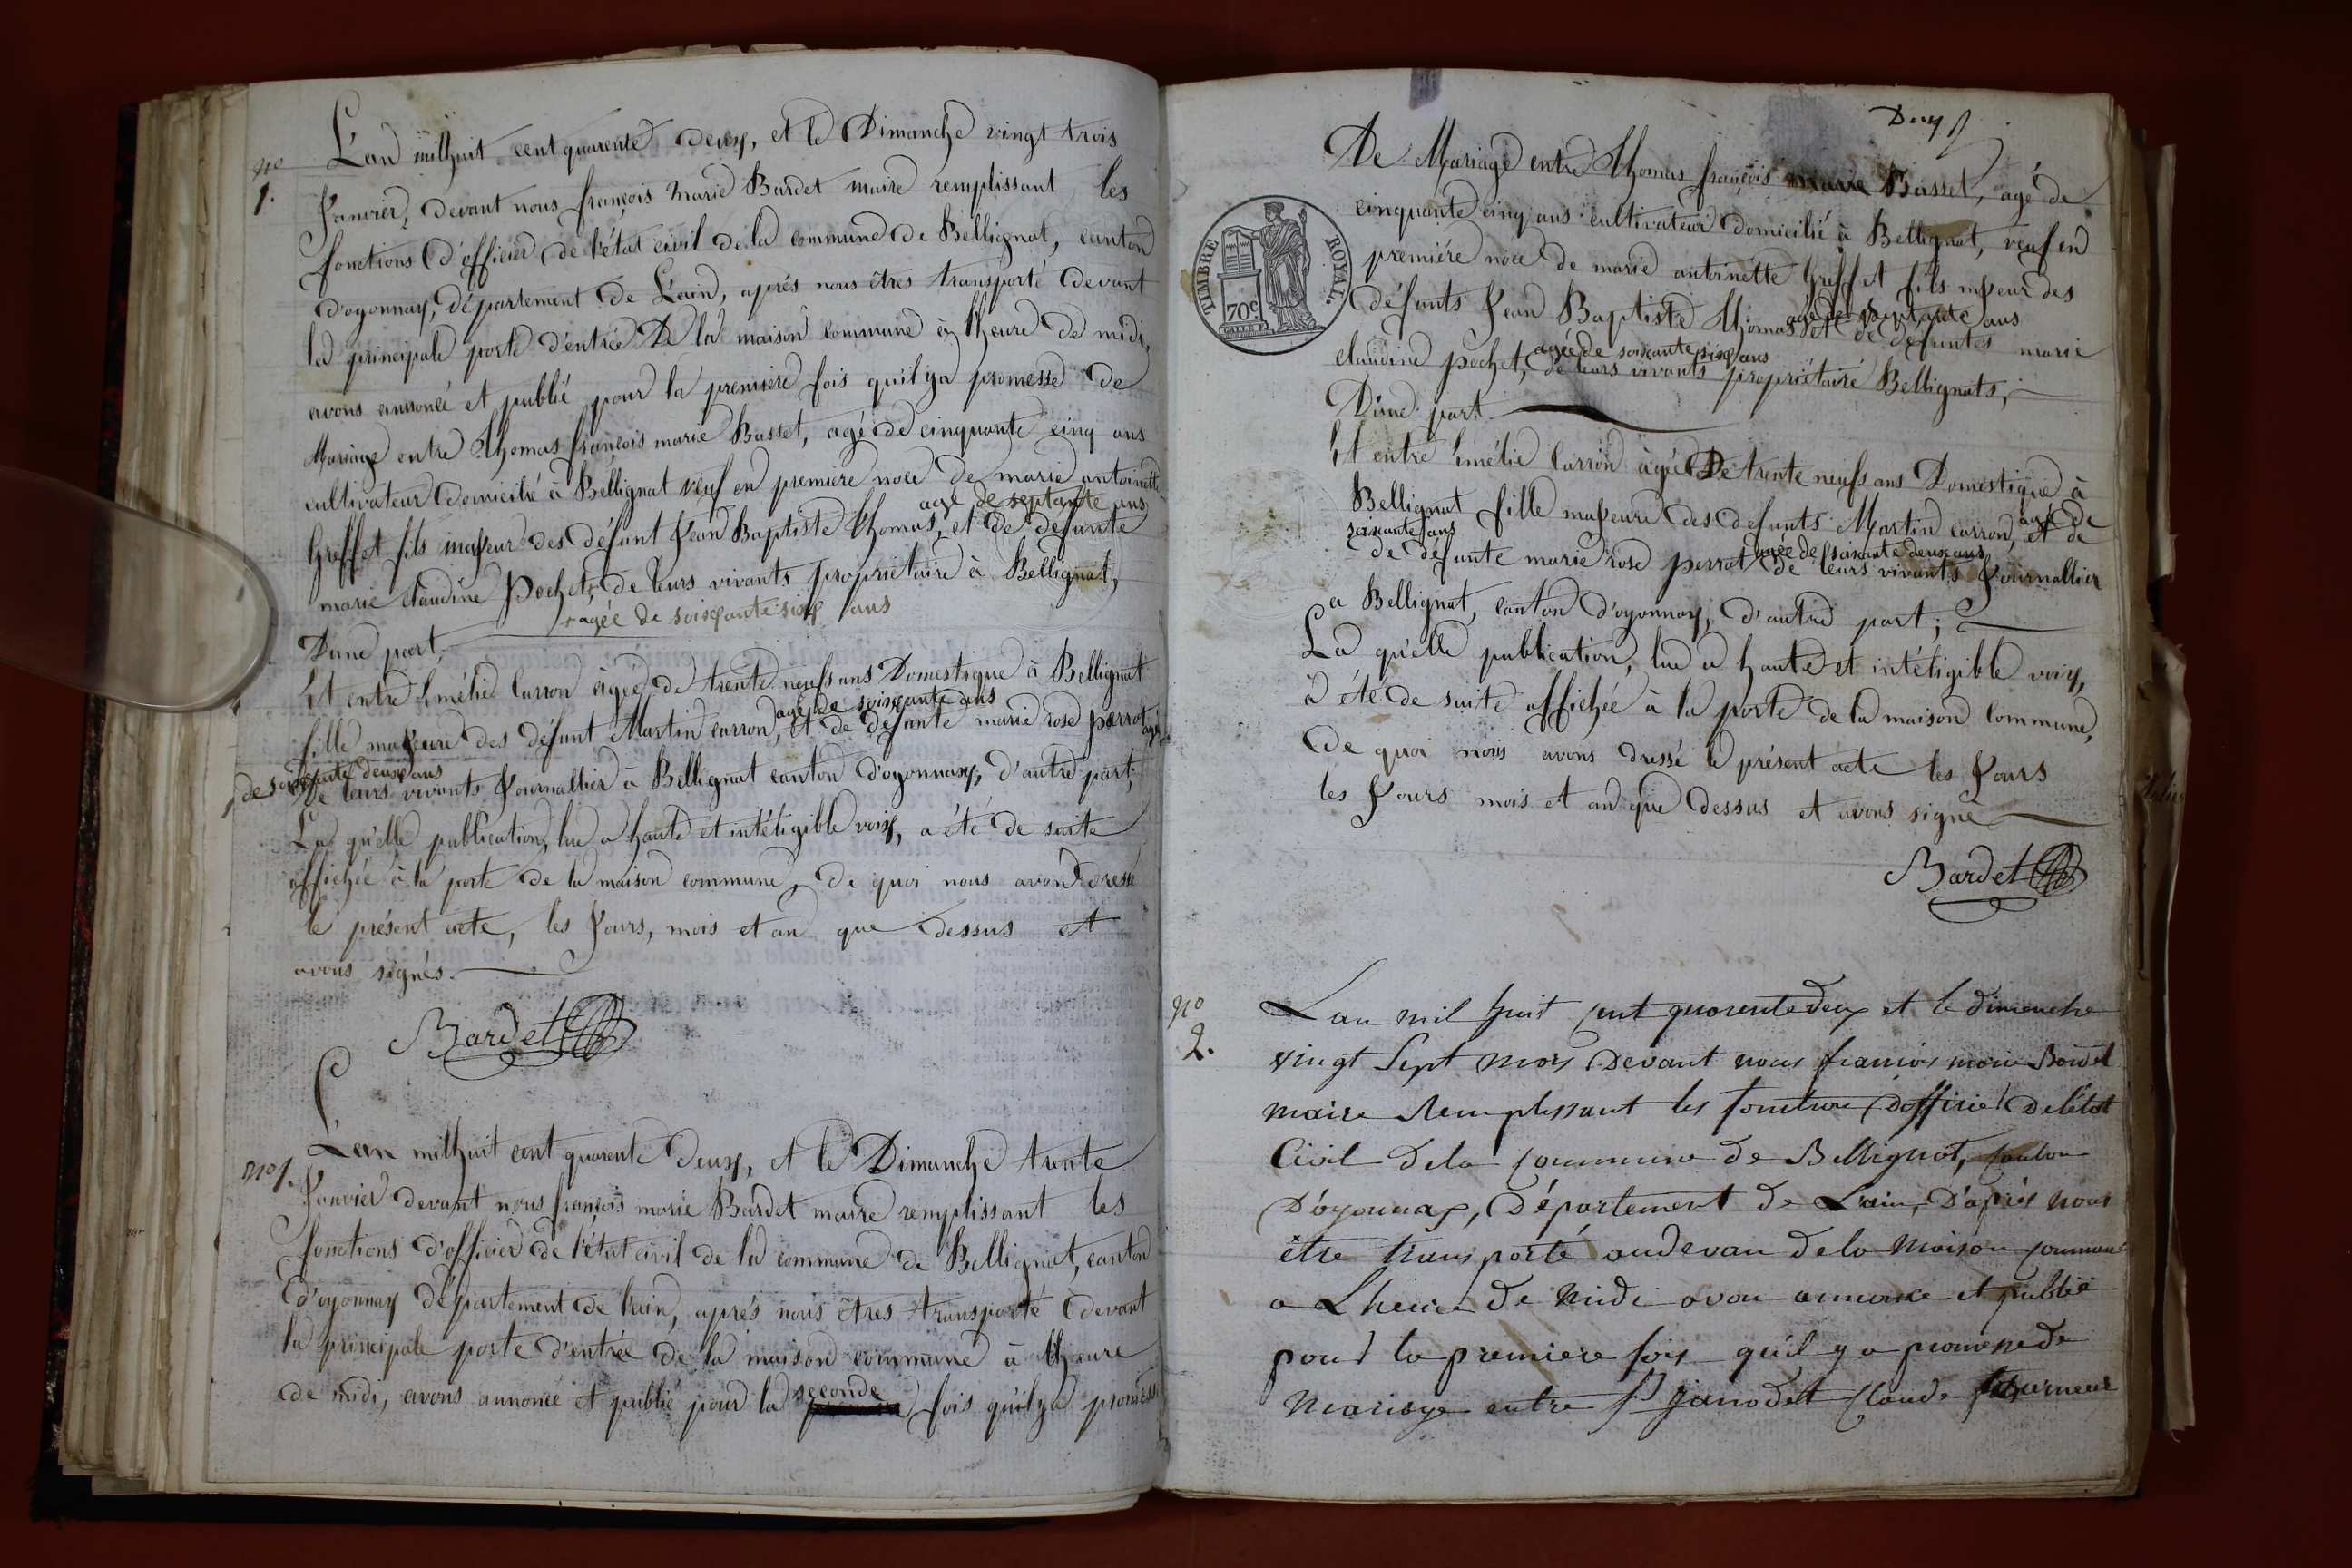 no
1.
L'an milhuit cent quarente deux, et le Dimanche vingt trois
Janvier, devant nous françois marie Bardet maire remplissant les
fonctions d'officier de l'état civil de la commune de Bellignat, canton
d'oyonnax, département de L'ain, aprés nous êtres transporté devant
la principale porte d'entrée De la maison commune à l'heure de midi,
avons annoncé et publié pour la premiere fois qu'il ya promesse de
Mariage entre thomas françois marie Basset, agé de cinquante cinq ans
cultivateur domicilié à Bellignat veuf en premiere noce de marie antoinette
agé de septante ans
Greffet fils majeur des défunt Jean Baptiste thomas, et de defunte
marie claudine Pochet, de leurs vivants propriétaire à Bellignat,
agée de soixante six ans
D'une part,
Et entre Emélie Carron âgée de trente neufs ans Domestique à Bellignat
agé de soixante ans
fille majeure des défunt Martin carron, et de defunte marie rose perrot agée
de soixante deux ans
de leurs vivants Journallier à Bellignat canton d'oyonnax, d'autre part;
La qu'elle publication, lue a haute et intéligible voix, a été de suite
affichée à la porte de la maison commune, de quoi nous avons dressé
le présent acte, les Jours, mois et an que dessus et
avons signés.
Bardet
no 1.
L'an milhuit cent quarente deux, et le Dimanche trente
Janvier devant nous françois marie Bardet maire remplissant les
fonctions d'officier de l'état civil de la commune de Bellignat, canton
d'oyonnax département de l'ain, aprés nous êtres transporté devant
la principale porte d'entrée de la maison commune à l'heure
seconde
de midi, avons annoncé et publié pour la fois qu'il ya promesse
Deux
TIMBRE ROYAL.
70c
De Mariage entre thomas françois marie Basset, agé de
cinquante cinq ans cultivateur domicilié à Bellignat, veuf en
premiére noce de marie antoinétte Greffet fils majeur des
agé de septante ans
défunts Jean Baptiste thomas et de defuntes marie
agée de soixante six ans
claudine pochet, de leurs vivants propriétaire Bellignats,
D'une part
Et entre Emélie Carron agée De trente neufs ans Domestique à
Bellignat fille majeure des defunts Martin carron, agé de
soixante ans
et de
de defunte marie rose perrot agée de soixante deux ans
de leurs vivants Journallier
a Bellignat, canton d'oyonnax, d'autre part;
La qu'elle publication, lue a haute et intéligible voix,
à été de suite affichée à la porte de la maison Commune,
de quoi nous avons dressé le présent acte les Jours
les Jours mois et an que dessus et avons signé
Bardet
no
2.
L'an mil huit cent quarente deux et le dimenche
vingt sept mars devant nous francois marie Bardet
maire Remplissant les fonctions d'officier de l'état
Civil de la commune de Bellignat, canton
D'oyonnax, Département de L'ain, D'aprés nous
être transporté audevan de la maison commune
a Lheure de midi avon annonce et publié
pour la premiere fois qu'il y a promesse de
Mariage entre Sr Janodet Claude tourneur